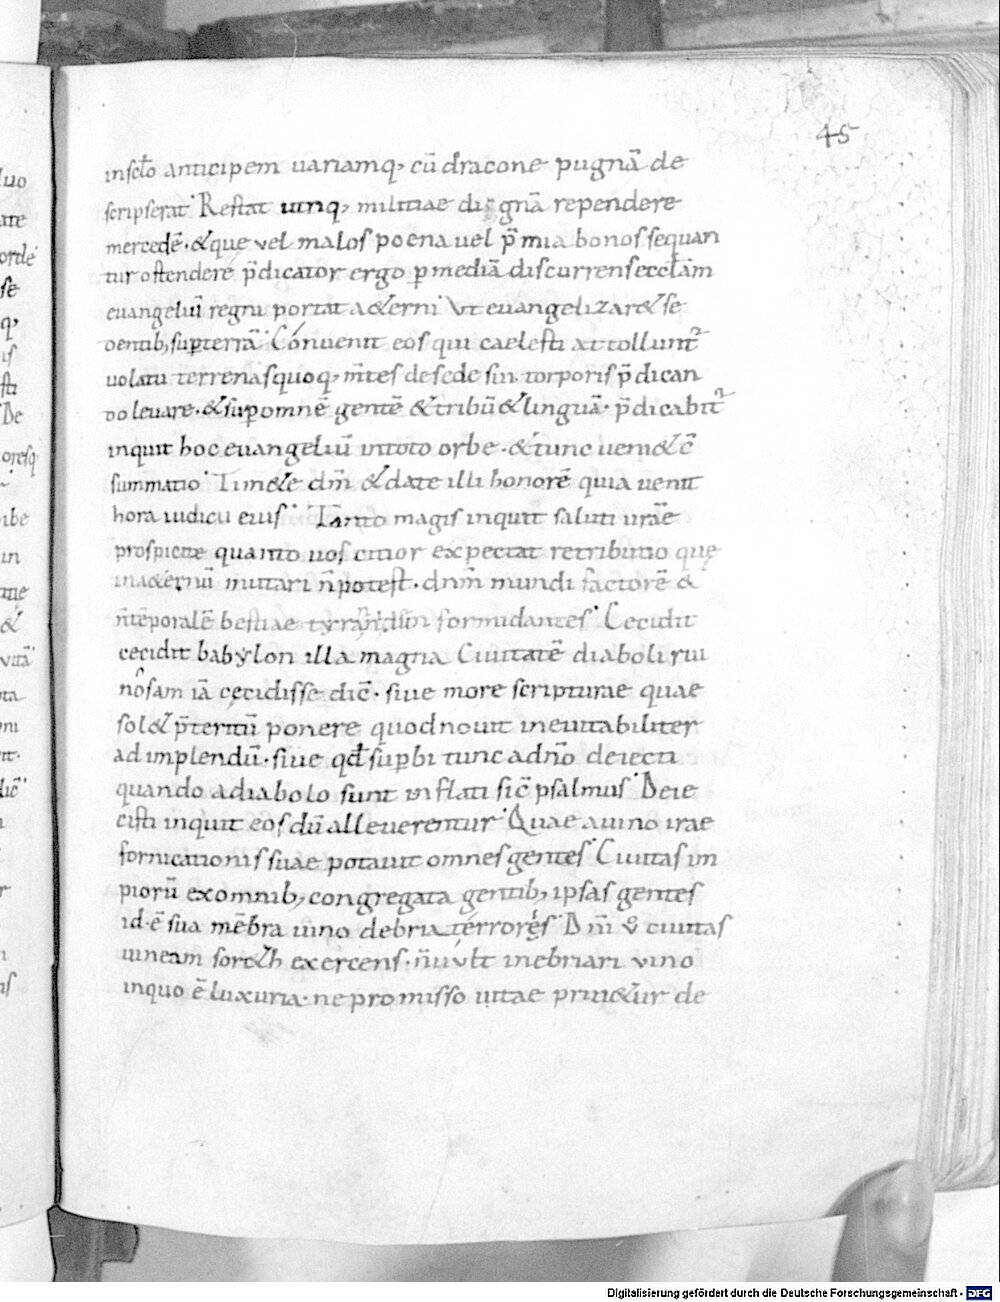 45
insc̄lo anticipem uariamq; cū dracone pugnā de
scripserat Restat utriq; militiae dignā rependere
mercedē · & que vel malos poena uel p̄mia bonos sequan
tur ostendere p̄dicator ergo p mediā discurrens eccl̄am
euangeliū regni portat a&erni Vt euangelizar& se
dentib; sup terrā Conuenit eos qui caelesti attollunt̄
uolatu terrenas quoq; m̄tes de sede sui torporis p̄dican
do leuare · & sup omnē gentē & tribū & linguā · p̄dicabit̄
inquit hoc euangeliū intoto orbe · & tunc ueni& c̄
summatio Tim&e dn̄m & date illi honorē quia uenit
hora iudicii eius Tanto magis inquit saluti urāe
prospicite quanto uos citior expectat retributio quę
ina&ernū mutari n̄ potest · dnm̄ mundi factorē &
n̄ tēporalē bestiae formidantes Cecidit
cecidit babylon illa magna Ciuitatē diaboli rui
nosam iā cęcidisse dic̄ · siue more scripturae quae
sol& p̄teritū ponere quod nouit ineuitabiliter
ad implendū · siue qd̄ supbi tunc adn̄o deiecti
quando adiabolo sunt inflati sic̄ psalmus Deie
cisti inquit eos dū alleuerentur Quae auino irae
fornicationis suae potauit omnes gentes Ciuitas im
piorū exomnib; congregata gentib; ipsas gentes
id · ē sua mēbra uino debria terrores Dn̄i v̊ ciuitas
uineam sor&h exercens · n̄ uult inebriari vino
inquo ē luxuria · ne promisso uitae priu&ur de
uo
se
q;
is
sti
De
oresq
ibe
in
&
ta
ni
dic̄
Digitalisierung gefördert durch die Deutsche Forschungsgemeinschaft - DFG